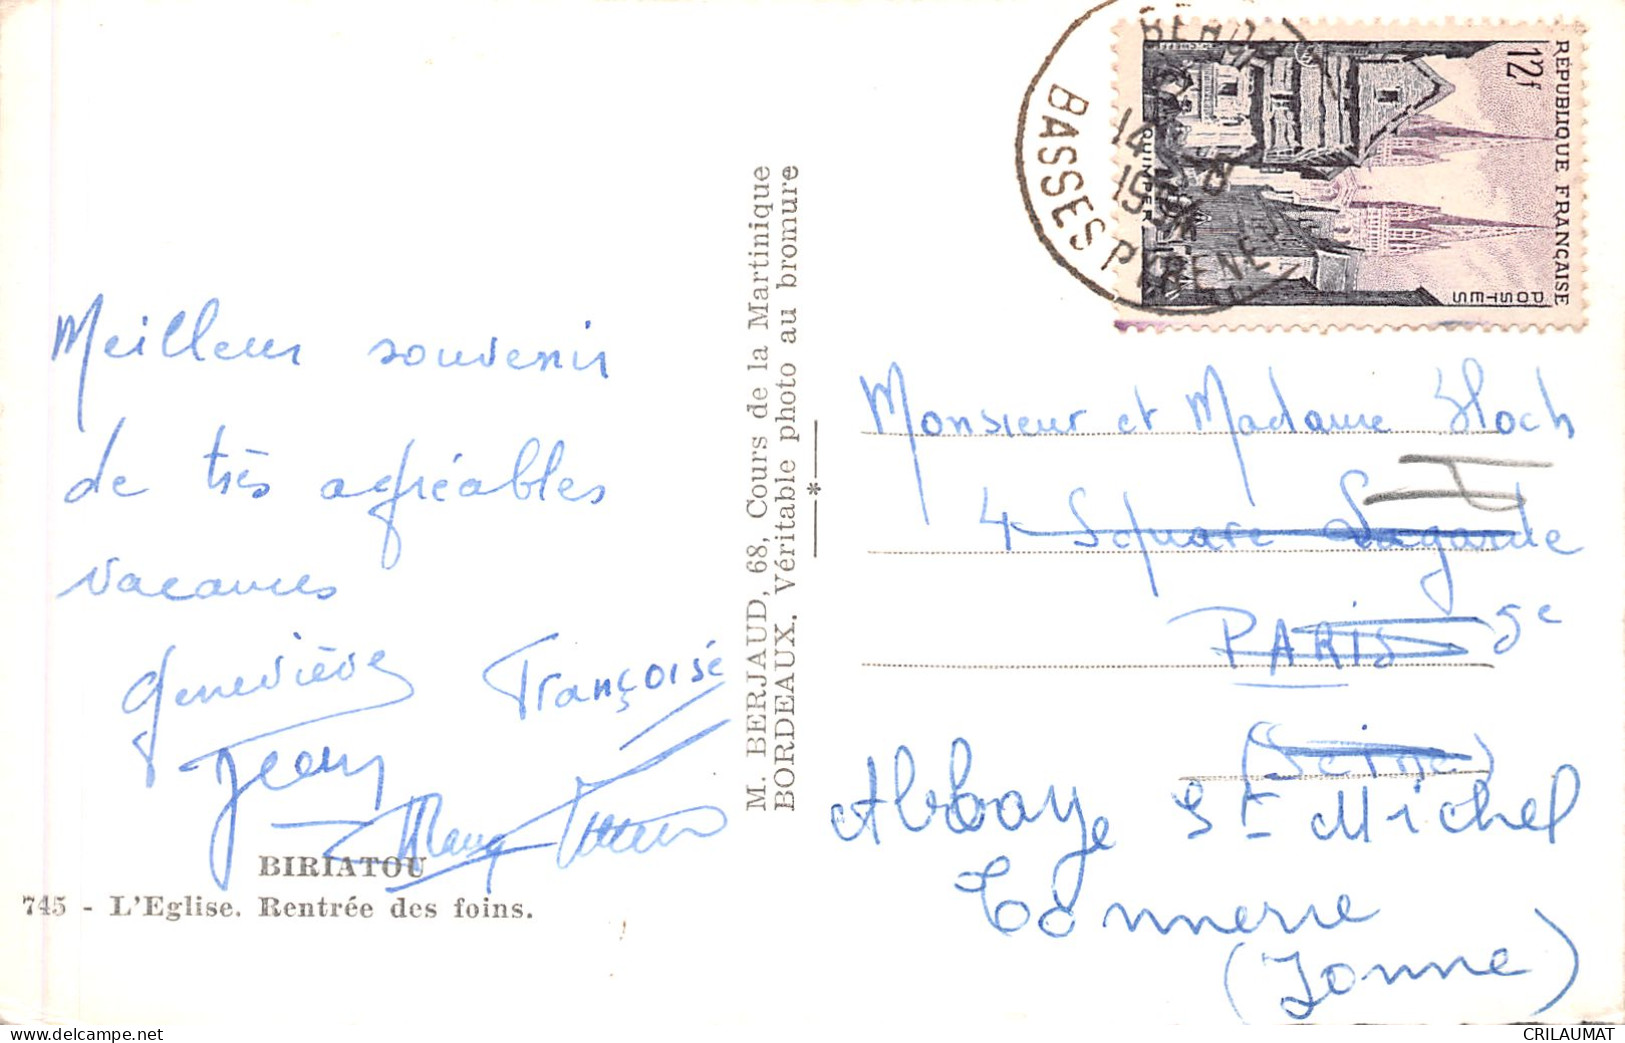 Meilleur souvenir
de très agréables
vacances
Geneviève Françoise
Jean
BIRIATOU
745 - L'Eglise. Rentrée des foins.
M. BERJAUD, 68, Cours de la Martinique
BORDEAUX. Véritable photo au bromure
BASSES PYRENEES
14
RÉPUBLIQUE FRANÇAISE
12f
POSTES
QUIMPER
Monsieur et Madame Bloch
4 Square Lagarde
PARIS 5e
(Seine)
Abbaye St Michel
Tonnerre
(Yonne)
www.delcampe.net
CRILAUMAT